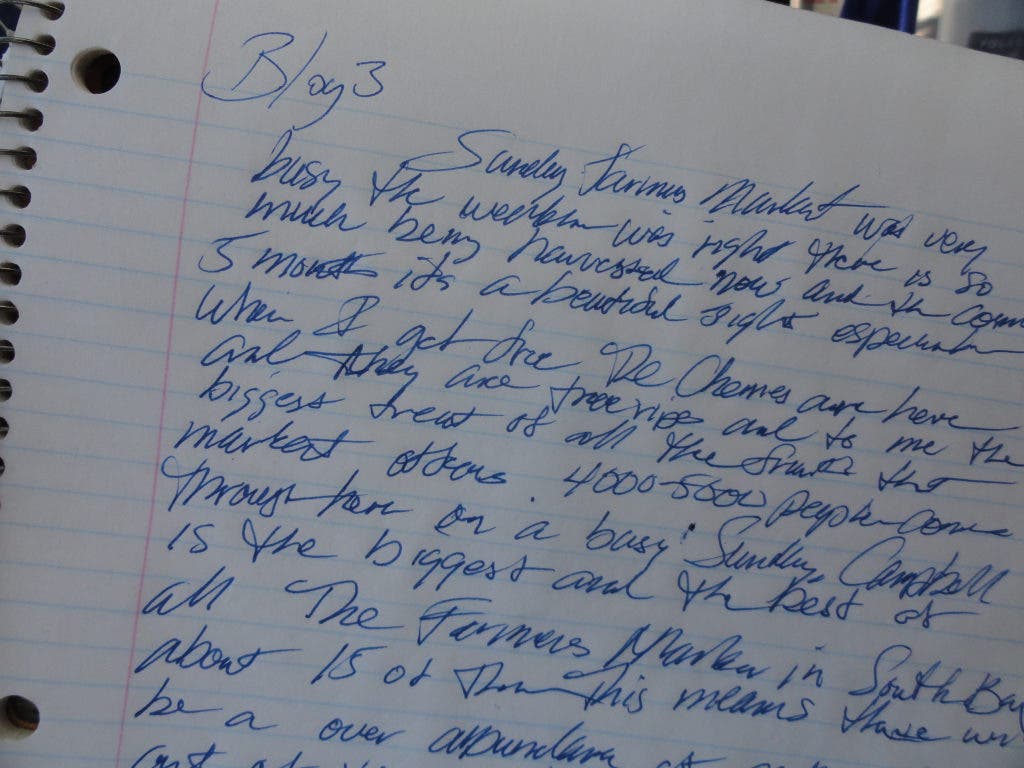 Blog 3
Sunday Farmers Market was very
busy the weather was right there is so
much being harvested now and the
5 months its a beautiful sight
when I get The Cherries are here
and they are tree ripe and to me the
biggest treat of all the fruits that
market offers. 4000-5000 people come
through here on a busy Sunday, Campbell
is the biggest and the best of
all The Farmers Market in South Bay
about 15 of them this means there
be a over abundance of
out of